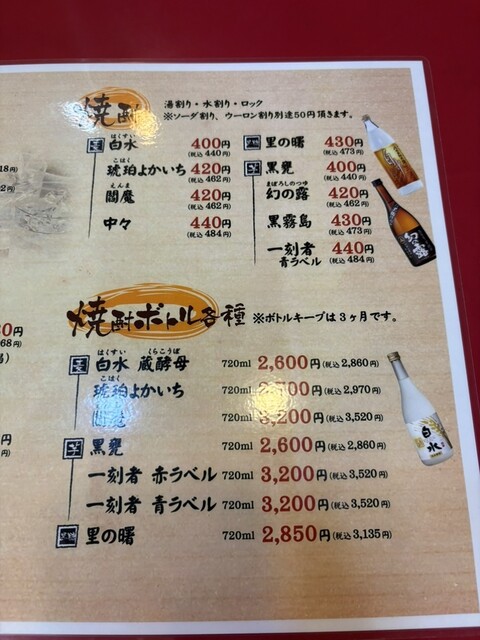 焼酎
湯割り・水割り・ロック
※ソーダ割り、ウーロン割り別途50円頂きます。
麦 白水 はくすい 400円 (税込440円)
琥珀よかいち こはく 420円 (税込462円)
閻魔 えんま 420円 (税込462円)
中々 440円 (税込484円)
里の曙 430円 (税込473円)
芋 黒甕 400円 (税込440円)
幻の露 まぼろしのつゆ 420円 (税込462円)
黒霧島 430円 (税込473円)
一刻者 青ラベル 440円 (税込484円)
焼酎ボトル各種 ※ボトルキープは3ヶ月です。
麦 白水 蔵酵母 はくすい くらこうぼ 720ml 2,600円(税込2,860円)
琥珀よかいち こはく 720ml 700円(税込2,970円)
720ml 3,200円(税込3,520円)
芋 黒甕 720ml 2,600円(税込2,860円)
一刻者 赤ラベル 720ml 3,200円(税込3,520円)
一刻者 青ラベル 720ml 3,200円(税込3,520円)
里の曙 720ml 2,850円(税込3,135円)
幻の露
白水